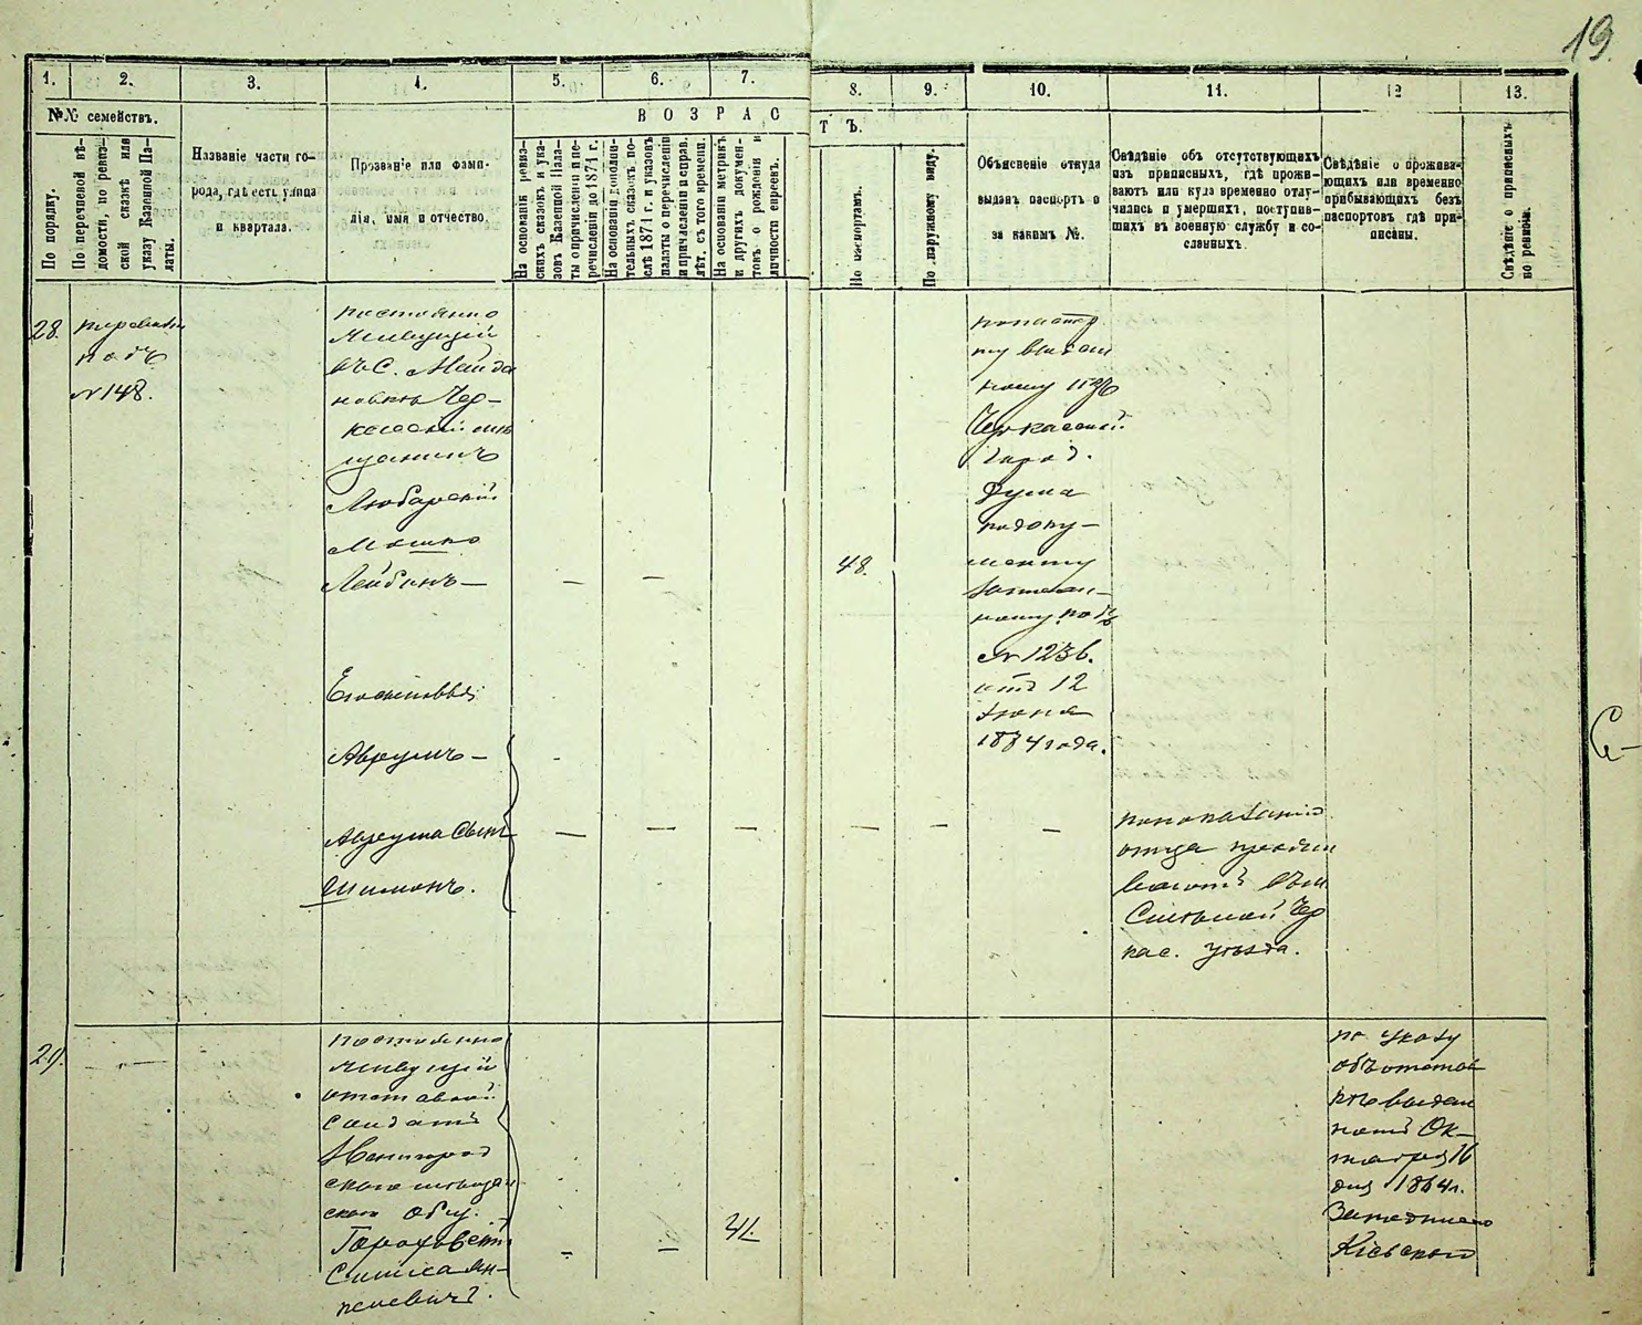 19.
1.
2.
3.
4.
5.
6.
7.
8.
9.
10.
11.
12
13.
№№ семействъ.
По порядку.
По перечневой вѣ-
домости, по ревиз-
ской сказкѣ или
указу Казенной Па-
латы.
Названіе части го-
рода, гдѣ есть улица
и квартала.
Прозваніе или фами-
лія, имя и отчество.
ВОЗРАСТЪ.
На основаніи ревиз-
скихъ сказокъ и ука-
зовъ Казенной Пала-
ты о причисленіи и пе-
речисленіи до 1871 г.
На основаніи дополни-
тельныхъ сказокъ по-
слѣ 1871 г. и указовъ
палаты о перечисленіи
и причисленіи и справ.
лѣт. съ того времени.
На основаніи метрикъ
и другихъ докумен-
товъ о рожденіи и
личности евреевъ.
По паспортамъ.
По наружному виду.
Объясненіе откуда
выданъ паспортъ и
за какимъ №.
Свѣдѣніе объ отсутствующихъ
изъ приписныхъ, гдѣ прожи-
ваютъ или куда временно отлу-
чились и умершихъ, поступив-
шихъ въ военную службу и со-
сланныхъ.
Свѣдѣніе о прожива-
ющихъ или временно
прибывающихъ безъ
паспортовъ гдѣ при-
писаны.
Свѣдѣніе о приписныхъ
по ревизіи.
28.
подъ
№ 148.
постоянно
живущій
въ С. Майда
новкѣ Чер-
касскій мѣ
щанинъ
Любарскій
Мошко
Лейбинъ —
— —
48.
по паспор
ту выдан
ному изъ
Черкасской
город.
Дума
по доку-
менту
записан-
ному подъ
№ 1236.
отъ 12
Іюня
1884 года.
Аврумъ —
Аврума Сынъ
Шимонъ.
— — — — — —
по показанію
отца прожи
ваютъ въ м.
Смѣлой Чер
кас. уѣзда.
29.
—
постоянно
живущій
отставной
солдатъ
Звенигород
скаго мѣщан
скаго общ.
Гороховскій
— —
по указу
объ отстав
кѣ выдан
номъ Ок-
тября 16
дня 1864 г.
Кіевскаго